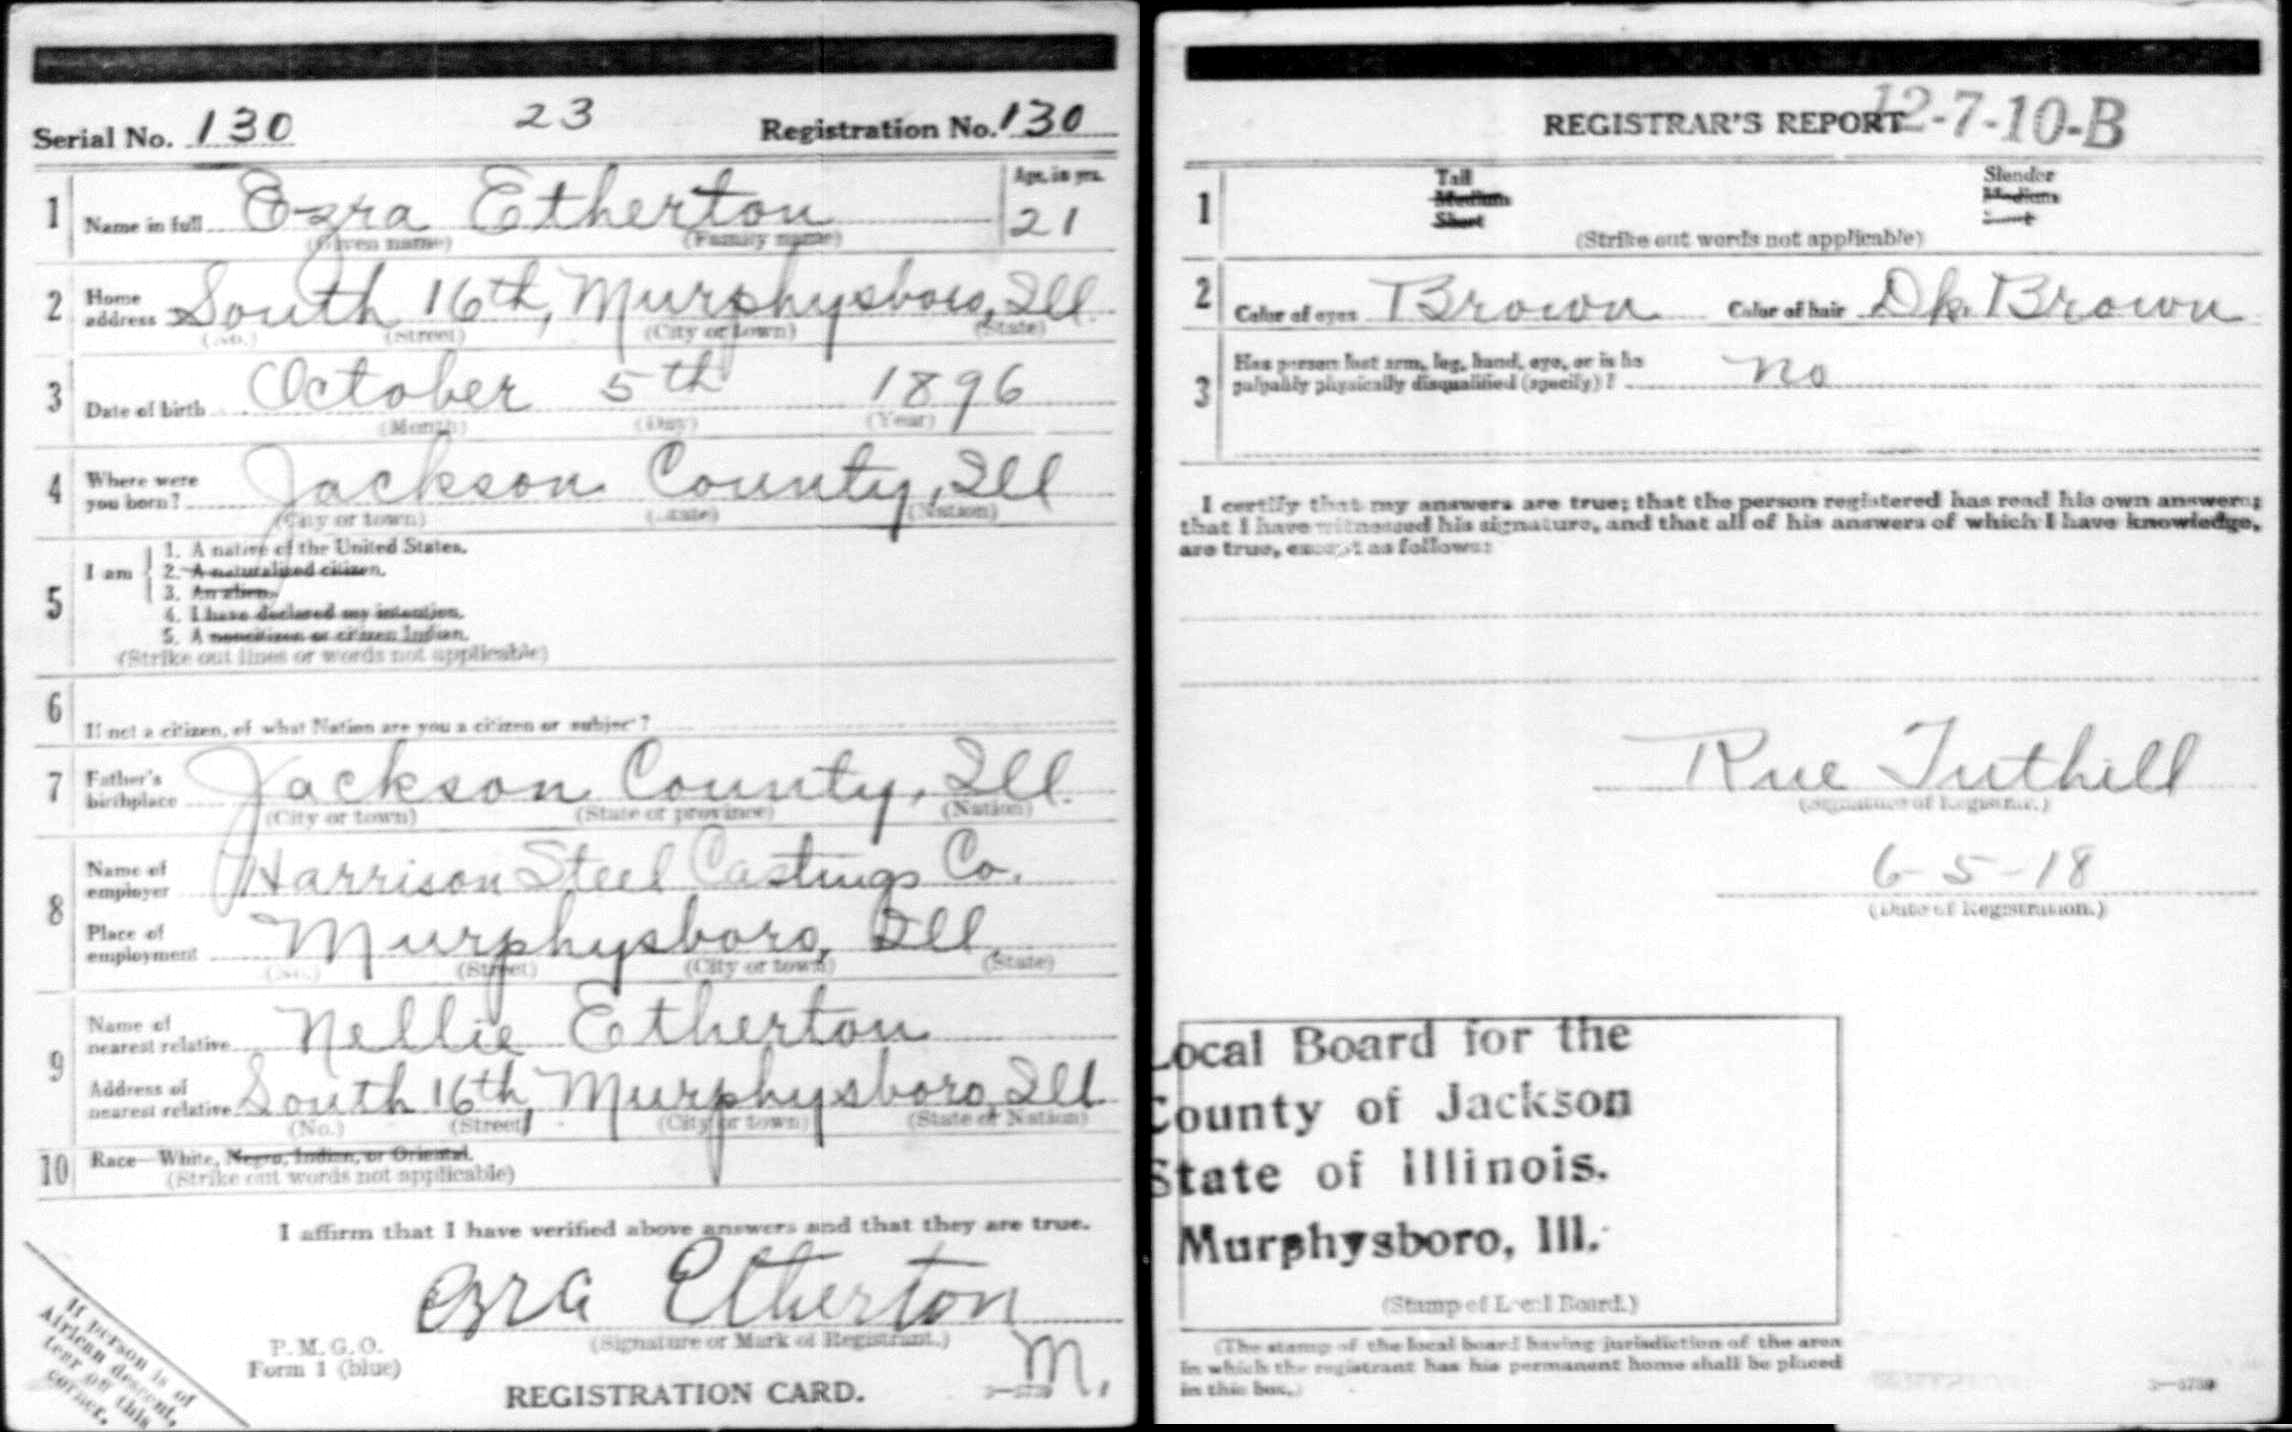 Serial No. 130 23 Registration No. 130
1 Name in full Ezra Etherton Age, in yrs. 21
(Given name) (Family name)
2 Home address South 16th, Murphysboro, Ill.
(No.) (Street) (City or town) (State)
3 Date of birth October 5th 1896
(Month) (Day) (Year)
4 Where were you born? Jackson County, Ill
(City or town) (State) (Nation)
5 I am
1. A native of the United States.
2. A naturalized citizen.
3. An alien.
4. I have declared my intention.
5. A noncitizen or citizen Indian.
(Strike out lines or words not applicable)
6 If not a citizen, of what Nation are you a citizen or subject?
7 Father's birthplace Jackson County, Ill.
(City or town) (State or province) (Nation)
8 Name of employer Harrison Steel Castings Co.
Place of employment Murphysboro, Ill.
(No.) (Street) (City or town) (State)
9 Name of nearest relative Nellie Etherton
Address of nearest relative South 16th, Murphysboro, Ill
(No.) (Street) (City or town) (State or Nation)
10 Race—White, Negro, Indian, or Oriental.
(Strike out words not applicable)
I affirm that I have verified above answers and that they are true.
Ezra Etherton
(Signature or Mark of Registrant.)
P. M. G. O.
Form 1 (blue)
M.
REGISTRATION CARD.
3—5739
If person is of
African descent,
tear off this
corner.
REGISTRAR'S REPORT 12-7-10-B
1 Tall Slender
Medium Medium
Short Stout
(Strike out words not applicable)
2 Color of eyes Brown Color of hair Dk. Brown
3 Has person lost arm, leg, hand, eye, or is he
palpably physically disqualified (specify)? No
I certify that my answers are true; that the person registered has read his own answers;
that I have witnessed his signature, and that all of his answers of which I have knowledge,
are true, except as follows:
Rue Tuthill
(Signature of Registrar.)
6-5-18
(Date of Registration.)
Local Board for the
County of Jackson
State of Illinois.
Murphysboro, Ill.
(Stamp of Local Board.)
(The stamp of the local board having jurisdiction of the area
in which the registrant has his permanent home shall be placed
in this box.)
3—5739